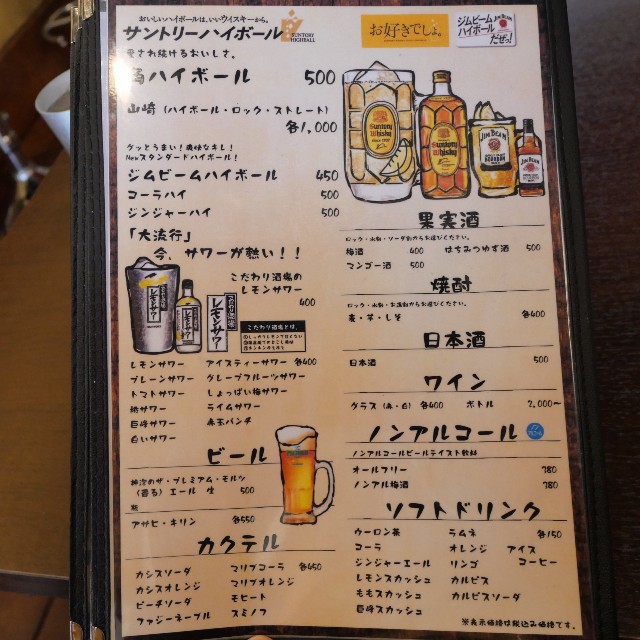 おいしいハイボールは、いいウイスキーから。
サントリーハイボール
SUNTORY
HIGHBALL
お好きでしょ。
ジムビーム
ハイボール
だぜっ!
JIM BEAM
愛され続けるおいしさ。
角ハイボール 500
山崎 (ハイボール・ロック・ストレート)
各1,000
グッとうまい!爽快なキレ!
Newスタンダードハイボール!
ジムビームハイボール 450
コーラハイ 500
ジンジャーハイ 500
Suntory
Whisky
Suntory
Whisky
JIM BEAM
BOURBON
JIM BEAM
「大流行」
今、サワーが熱い!!
こだわり酒場の
レモンサワー
400
レモンサワー
こだわり酒場
レモンサワー
こだわり酒場とは。
レモンサワー アイスティーサワー 各400
プレーンサワー グレープフルーツサワー
トマトサワー しょっぱい梅サワー
ライムサワー
巨峰サワー 赤玉パンチ
白いサワー
ビール
神泡のザ・プレミアム・モルツ
(香る)エール 生 500
瓶
アサヒ・キリン 各550
カクテル
カシスソーダ マリブコーラ 各450
カシスオレンジ マリブオレンジ
ピーチソーダ モヒート
ファジーネーブル スミノフ
果実酒
ロック・水割・ソーダ割からお選びください。
梅酒 400 はちみつゆず酒 500
マンゴー酒 500
焼酎
ロック・水割・お湯割からお選びください。
麦・芋・しそ 各400
日本酒
日本酒 500
ワイン
グラス(赤・白) 各400 ボトル 2,000〜
ノンアルコール
ノンアルコールビールテイスト飲料
オールフリー 380
ノンアル梅酒 380
ソフトドリンク
ウーロン茶 ラムネ 各150
コーラ オレンジ アイス
ジンジャーエール リンゴ コーヒー
レモンスカッシュ カルピス
ももスカッシュ カルピスソーダ
巨峰スカッシュ
※表示価格は税込み価格です。